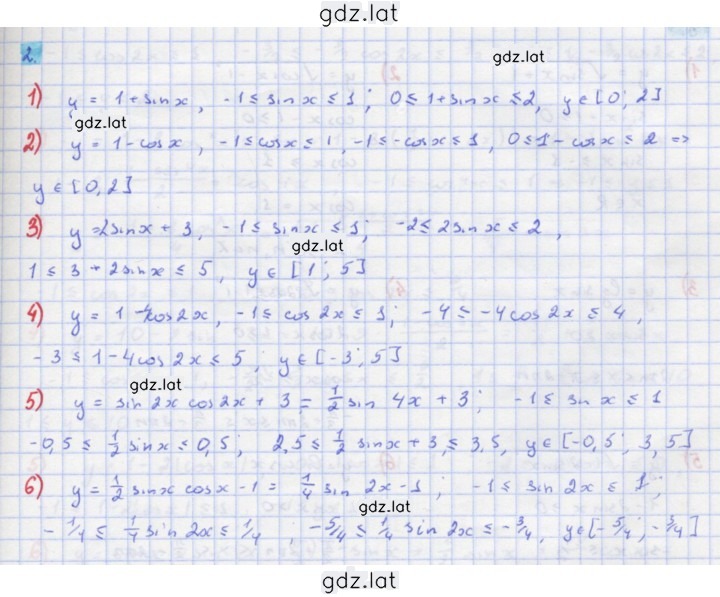 gdz.lat
2.
gdz.lat
1) y = 1 + sin x, -1 ≤ sin x ≤ 1; 0 ≤ 1 + sin x ≤ 2, y ∈ [0; 2]
gdz.lat
2) y = 1 - cos x, -1 ≤ cos x ≤ 1, -1 ≤ -cos x ≤ 1, 0 ≤ 1 - cos x ≤ 2 =>
y ∈ [0, 2]
3) y = 2 sin x + 3, -1 ≤ sin x ≤ 1; -2 ≤ 2 sin x ≤ 2,
gdz.lat
1 ≤ 3 + 2 sin x ≤ 5, y ∈ [1; 5]
4) y = 1 - 4cos 2x, -1 ≤ cos 2x ≤ 1; -4 ≤ -4 cos 2x ≤ 4,
-3 ≤ 1 - 4 cos 2x ≤ 5; y ∈ [-3; 5]
gdz.lat
5) y = sin 2x cos 2x + 3 = 1/2 sin 4x + 3; -1 ≤ sin x ≤ 1
-0,5 ≤ 1/2 sin x ≤ 0,5; 2,5 ≤ 1/2 sin x + 3 ≤ 3,5, y ∈ [-0,5; 3,5]
6) y = 1/2 sin x cos x - 1 = 1/4 sin 2x - 1; -1 ≤ sin 2x ≤ 1;
gdz.lat
-1/4 ≤ 1/4 sin 2x ≤ 1/4; -5/4 ≤ 1/4 sin 2x ≤ -3/4, y ∈ [-5/4; -3/4]
gdz.lat